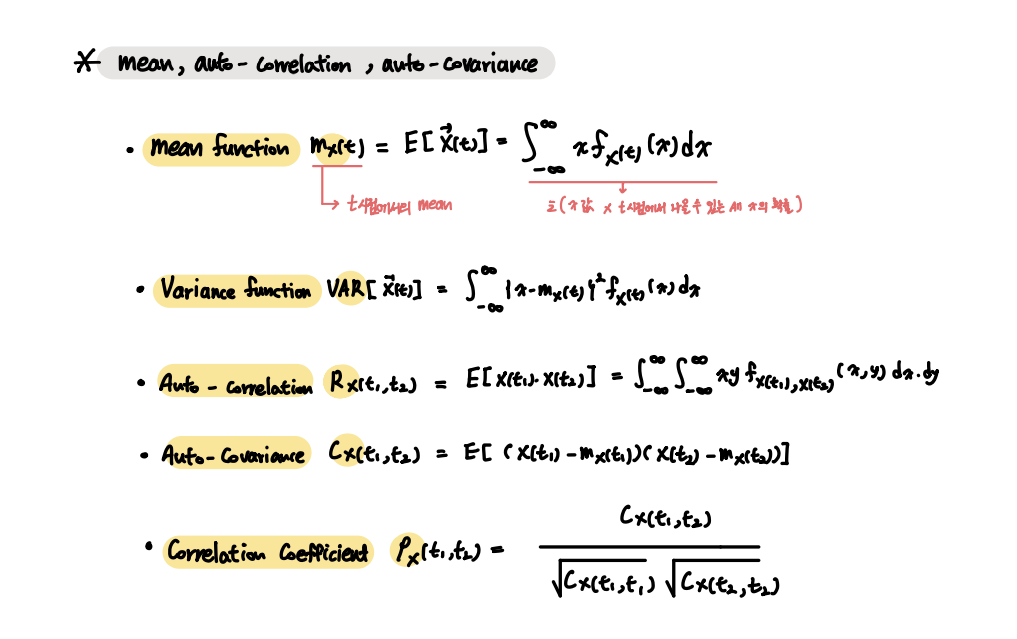 * mean, auto-correlation, auto-covariance
• mean function m_X(t) = E[X⃗(t)] = ∫_{-∞}^{∞} x f_{X(t)}(x)dx
↳ t시점에서의 mean
Σ(x값 × t시점에서 나올 수 있는 새 x의 확률)
• Variance function VAR[X⃗(t)] = ∫_{-∞}^{∞} {x-m_X(t)}² f_{X(t)}(x)dx
• Auto-correlation R_X(t₁,t₂) = E[X(t₁)·X(t₂)] = ∫_{-∞}^{∞} ∫_{-∞}^{∞} xy f_{X(t₁),X(t₂)}(x,y) dx·dy
• Auto-Covariance C_X(t₁,t₂) = E[(X(t₁)-m_X(t₁))(X(t₂)-m_X(t₂))]
• Correlation Coefficient ρ_X(t₁,t₂) = C_X(t₁,t₂) / √C_X(t₁,t₁) √C_X(t₂,t₂)